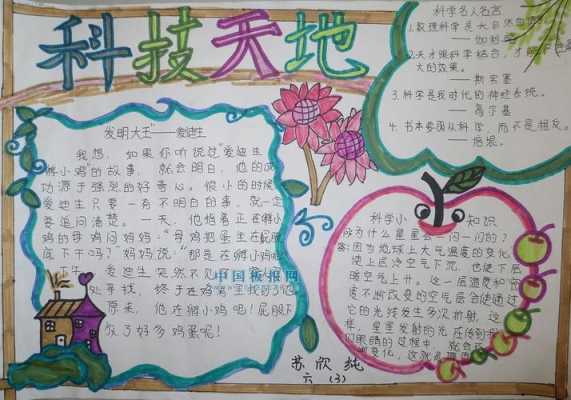 科技天地
发明大王"——爱迪生
我想，如果你听说过"爱迪生
孵小鸡"的故事，就会明白，他的成
功源于强烈的好奇心。很小的时候
爱迪生只要一有不明白的事，就一定
要追问清楚。一天，他指着正在孵小
鸡的母鸡问妈妈："母鸡把蛋坐在屁股
底下干吗？"妈妈说："那是在孵小鸡呢
爱迪生突然不见了
处寻找，终于在鸡窝里找到了他
原来，他在孵小鸡呢！屁股下
放了好多鸡蛋呢！
中国板报网
苏欣纯
六（3）
科学名人名言
1.数理科学是大自然的语言。
——伽利略
2.天才跟科学结合，才能
大的效果。
——斯宾塞
3.科学是我时代的神经系统。
——高尔基
4.书本要跟从科学，而不是相反。
——培根。
科学小知识
为什么星星会一闪一闪的？
答：因为地球上大气温度的变化，
使上层冷空气下沉，也使下层
暖空气上升。这一层温度和密
度不断改变的空气层会使通过
它的光线发生多次折射，这
样，星星发射的光在传到我
们眼睛的过程中，就会
变化，这就